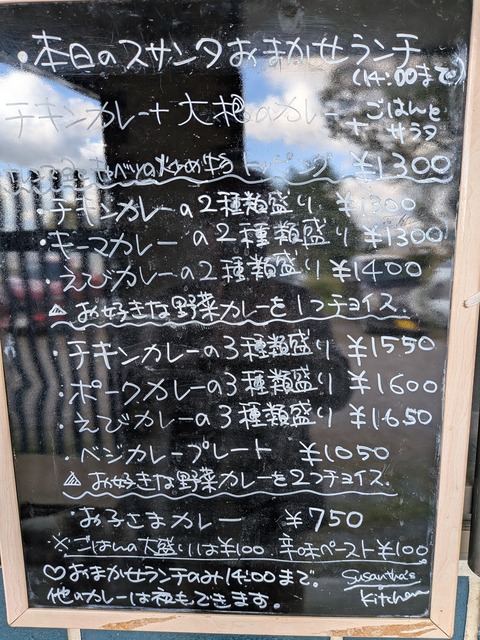 ・本日のスサンタおまかせランチ
(14:00まで)
チキンカレー + 大根のカレー + ごはんと
サラダ
キャベツの炒め物 トッピング ¥1300
・チキンカレーの2種類盛り ¥1300
・キーマカレーの2種類盛り ¥1300
・えびカレーの2種類盛り ¥1400
お好きな野菜カレーを1つチョイス.
・チキンカレーの3種類盛り ¥1550
・ポークカレーの3種類盛り ¥1600
・えびカレーの3種類盛り ¥1650
・ベジカレープレート ¥1050
お好きな野菜カレーを2つチョイス.
・お子さまカレー ¥750
※ごはんの大盛りは¥100 辛味ペースト¥100
♡おまかせランチのみ14:00まで.
他のカレーは夜もできます.
Susantha's
Kitchen